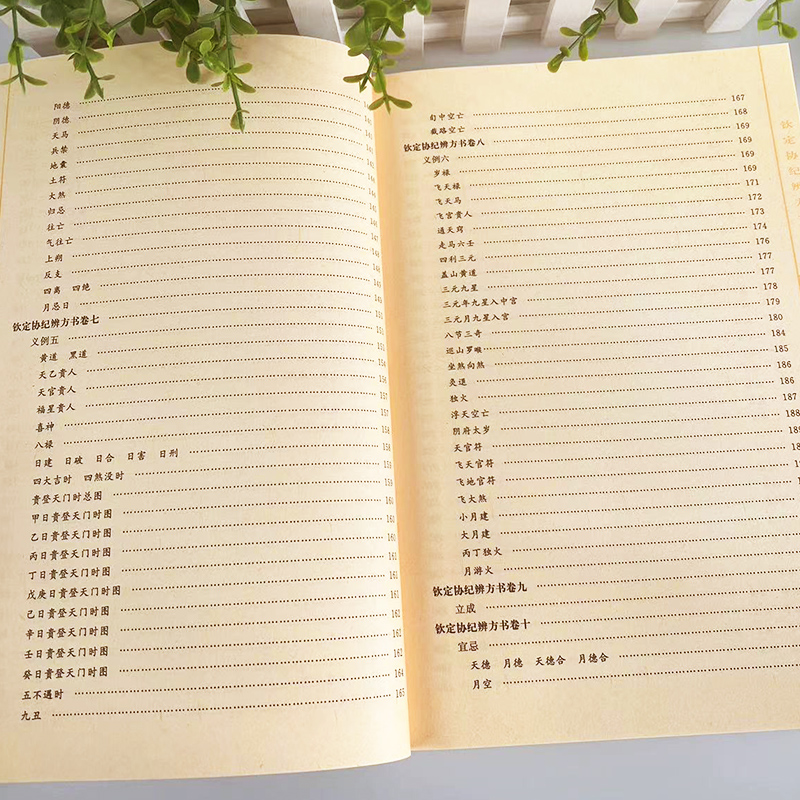 阳德
阴德
天马
兵禁
地囊
土符
大煞
归忌
往亡
气往亡
上朔
反支
四离 四绝
月忌日
钦定协纪辨方书卷七
义例五
黄道 黑道
天乙贵人
天官贵人
福星贵人
喜神
八禄
日建 日破 日合 日害 日刑
四大吉时 四煞没时 159
贵登天门时总图 159
甲日贵登天门时图 160
乙日贵登天门时图 160
丙日贵登天门时图 161
丁日贵登天门时图 161
戊庚日贵登天门时图 161
己日贵登天门时图 161
辛日贵登天门时图 161
壬日贵登天门时图 162
癸日贵登天门时图 162
五不遇时 164
九丑 165
旬中空亡 167
截路空亡 168
钦定协纪辨方书卷八 169
义例六 169
岁禄 169
飞天禄 169
飞天马 171
飞宫贵人 172
通天窍 173
走马六壬 174
四利三元 176
盖山黄道 177
三元九星 177
三元年九星入中宫 178
三元月九星入宫 179
八节三奇 180
巡山罗睺 184
坐煞向煞 185
灸退 186
独火 186
浮天空亡 187
阴府太岁 188
天官符
飞天官符
飞地官符
飞大煞
小月建
大月建
丙丁独火
月游火
钦定协纪辨方书卷九
立成
钦定协纪辨方书卷十
宜忌
天德 月德 天德合 月德合
月空